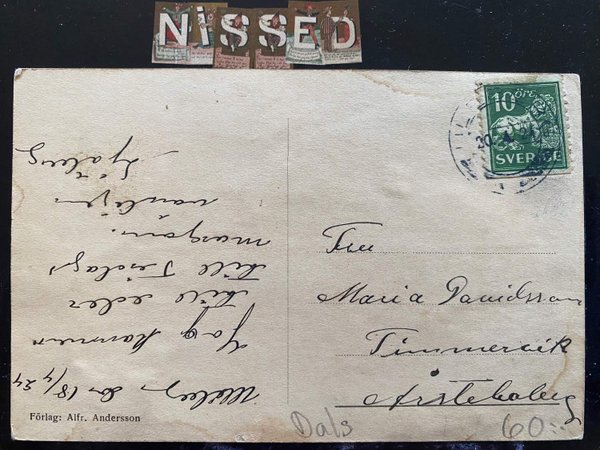 NISSED
10 ÖRE
SVERIGE
Fru
Maria Davidsson
Timmervik
den 18/4 24
Jag kommer
till eder
till Tisdags
margon.
vänligen
Sjöberg
Förlag: Alfr. Andersson
Dals
60:-